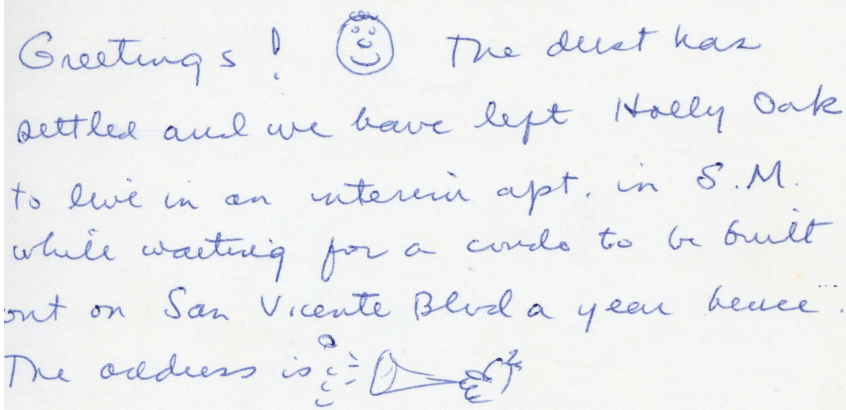 Greetings! The dust has
settled and we have left Holly Oak
to live in an interim apt. in S.M.
while waiting for a condo to be built
out on San Vicente Blvd a year hence.
The address is